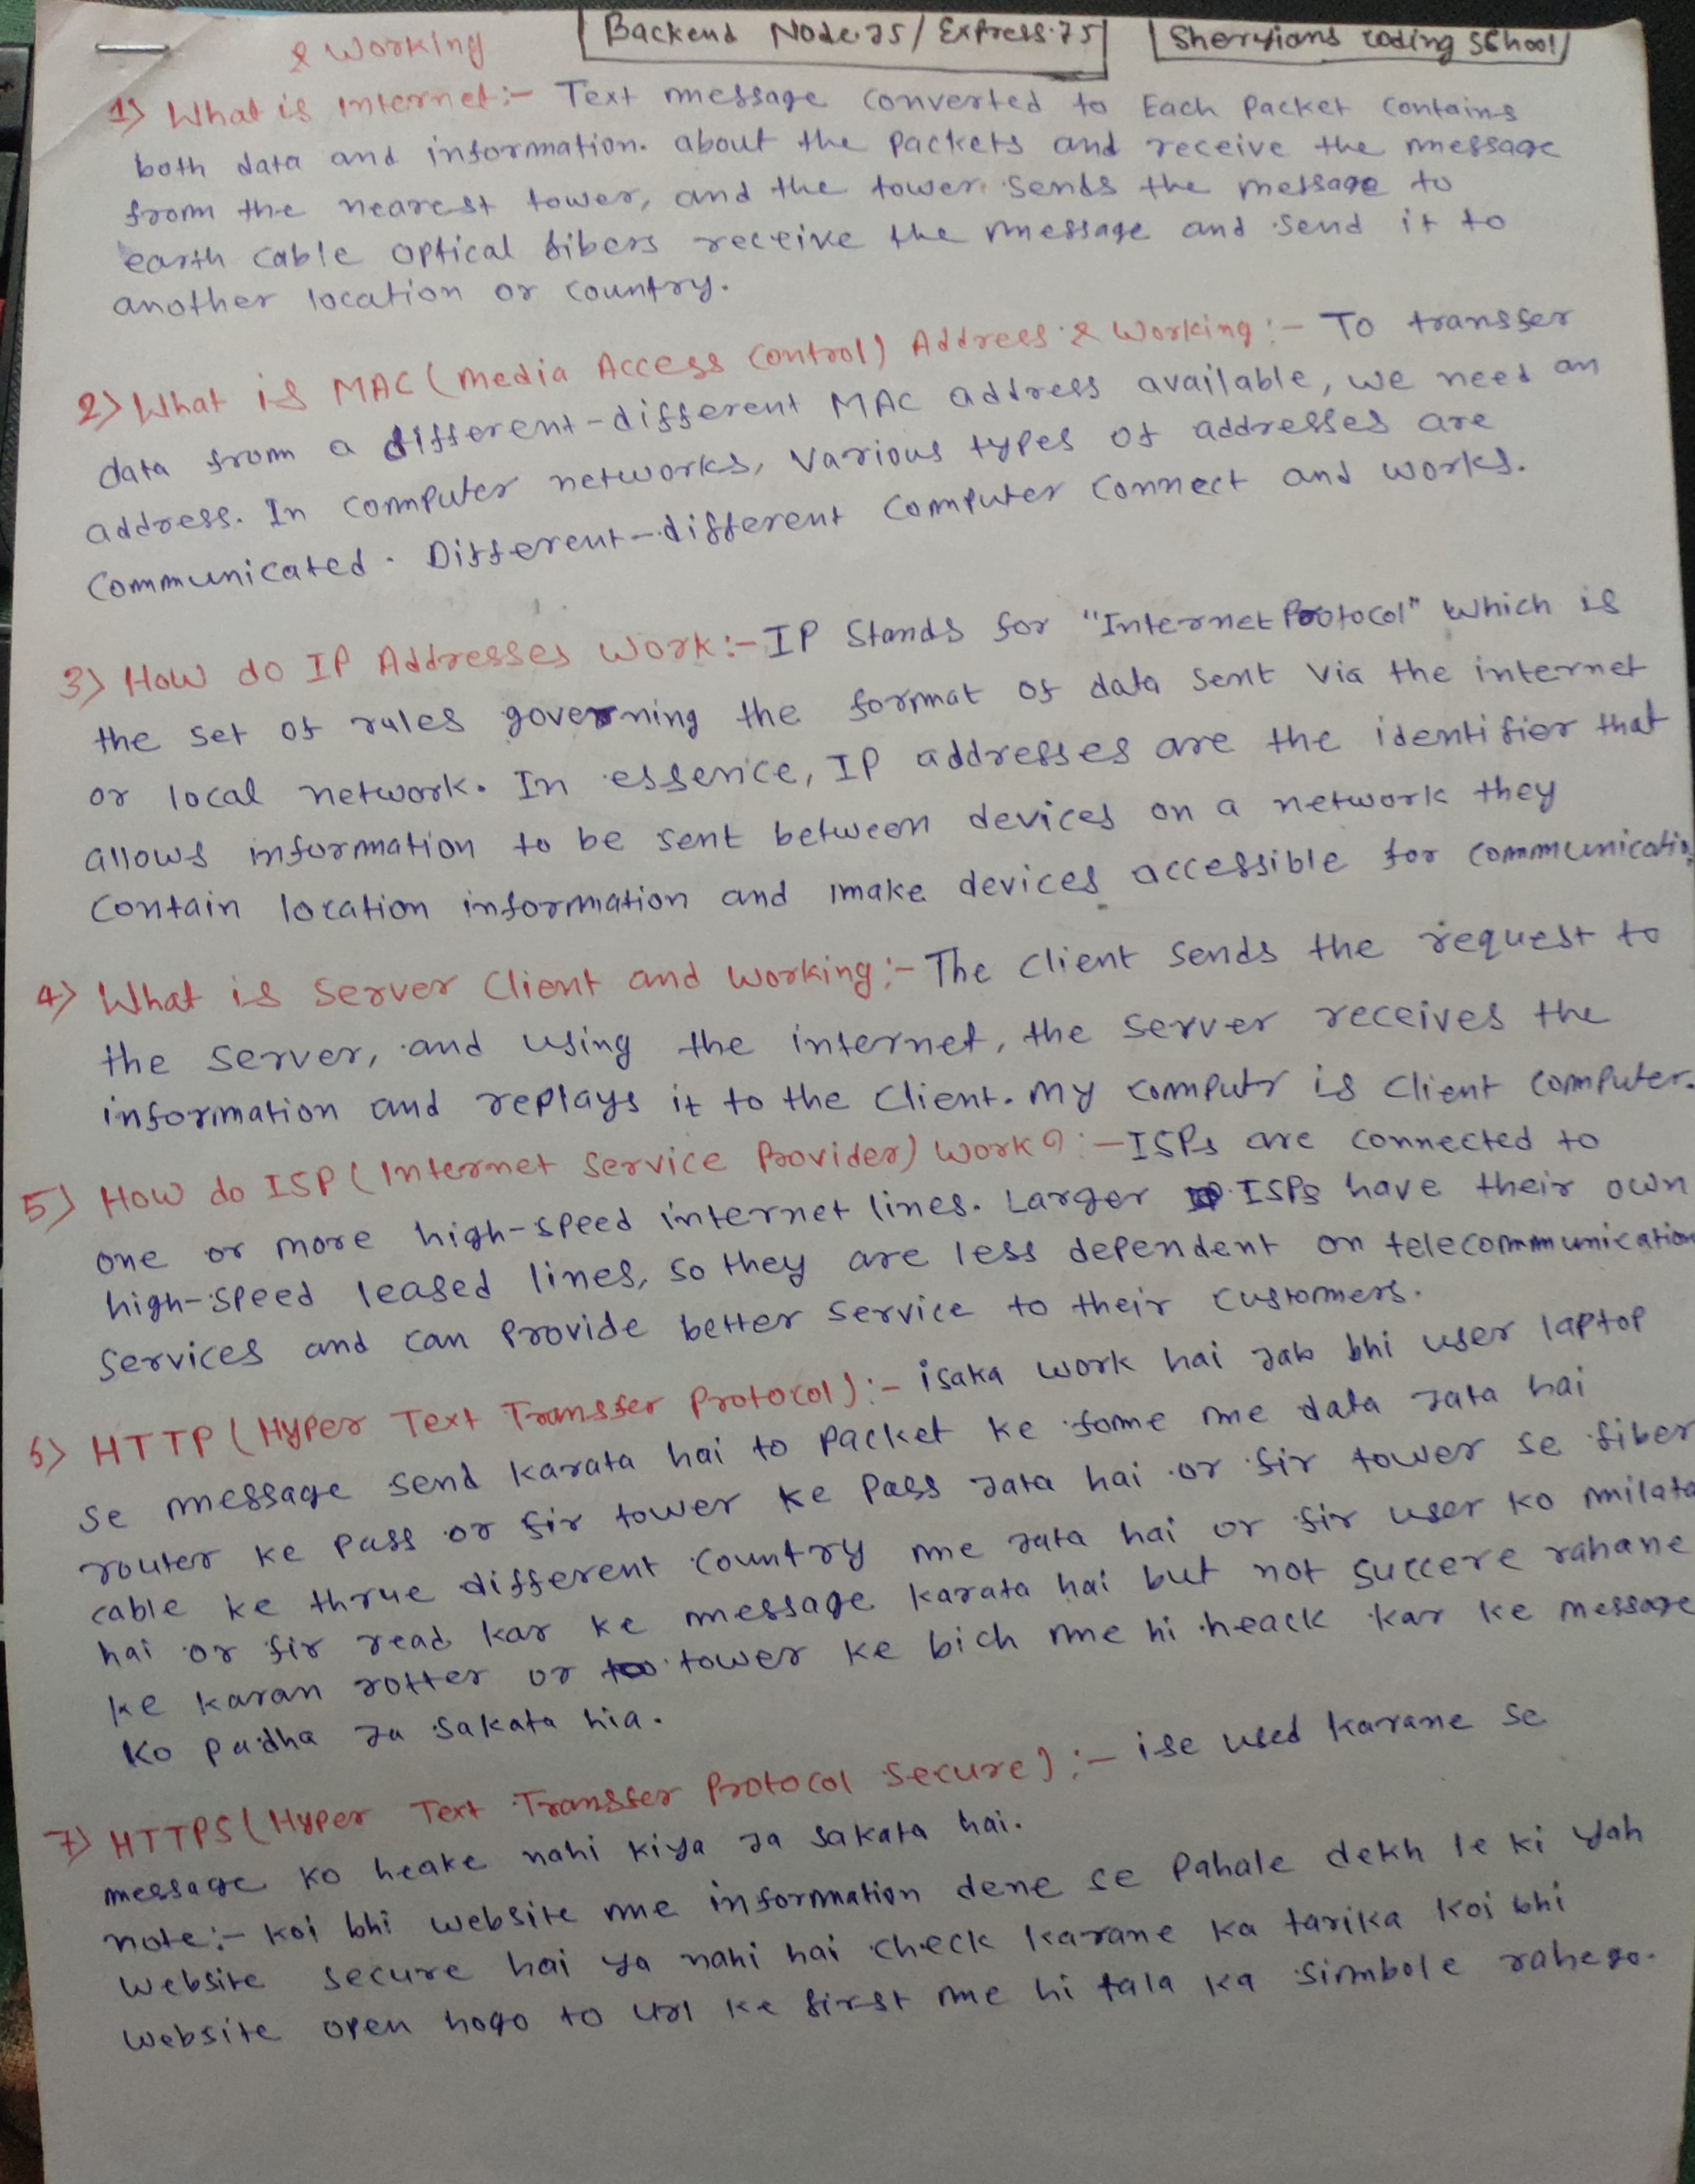 Backend Node.JS/Express.JS
Sheryians coding school
& Working
1) What is internet:- Text message converted to Each Packet contains
both data and information. about the packets and receive the message
from the nearest tower, and the tower sends the message to
earth cable optical fibers receive the message and send it to
another location or country.
2) What is MAC (Media Access Control) Address & Working:- To transfer
data from a different-different MAC address available, we need an
address. In computer networks, various types of addresses are
communicated. Different-different computer connect and works.
3) How do IP Addresses work:- IP Stands for "Internet Protocol" which is
the set of rules governing the format of data sent via the internet
or local network. In essence, IP addresses are the identifier that
allows information to be sent between devices on a network they
contain location information and make devices accessible for communicatio
4) What is Server Client and working:- The client sends the request to
the server, and using the internet, the server receives the
information and replays it to the client. my computr is client computer.
5) How do ISP (Internet Service Provider) Work?:- ISPs are connected to
one or more high-speed internet lines. Larger ISPs have their own
high-speed leased lines, so they are less dependent on telecommunication
services and can provide better service to their customers.
6) HTTP (Hyper Text Transfer Protocol):- isaka work hai jab bhi user laptop
se message send karata hai to packet ke fome me data jata hai
router ke pass or fir tower ke pass jata hai or fir tower se fiber
cable ke thrue different country me jata hai or fir user ko milata
hai or fir read kar ke message karata hai but not succere rahane
ke karan rotter or tower ke bich me hi heack kar ke message
ko padha ja sakata hia.
7) HTTPS (Hyper Text Transfer Protocol Secure):- ise used karane se
message ko heake nahi kiya ja sakata hai.
note:- koi bhi website me information dene se pahale dekh le ki yah
website secure hai ya nahi hai check karane ka tarika koi bhi
website open hogo to url ke first me hi tala ka simbole rahego.